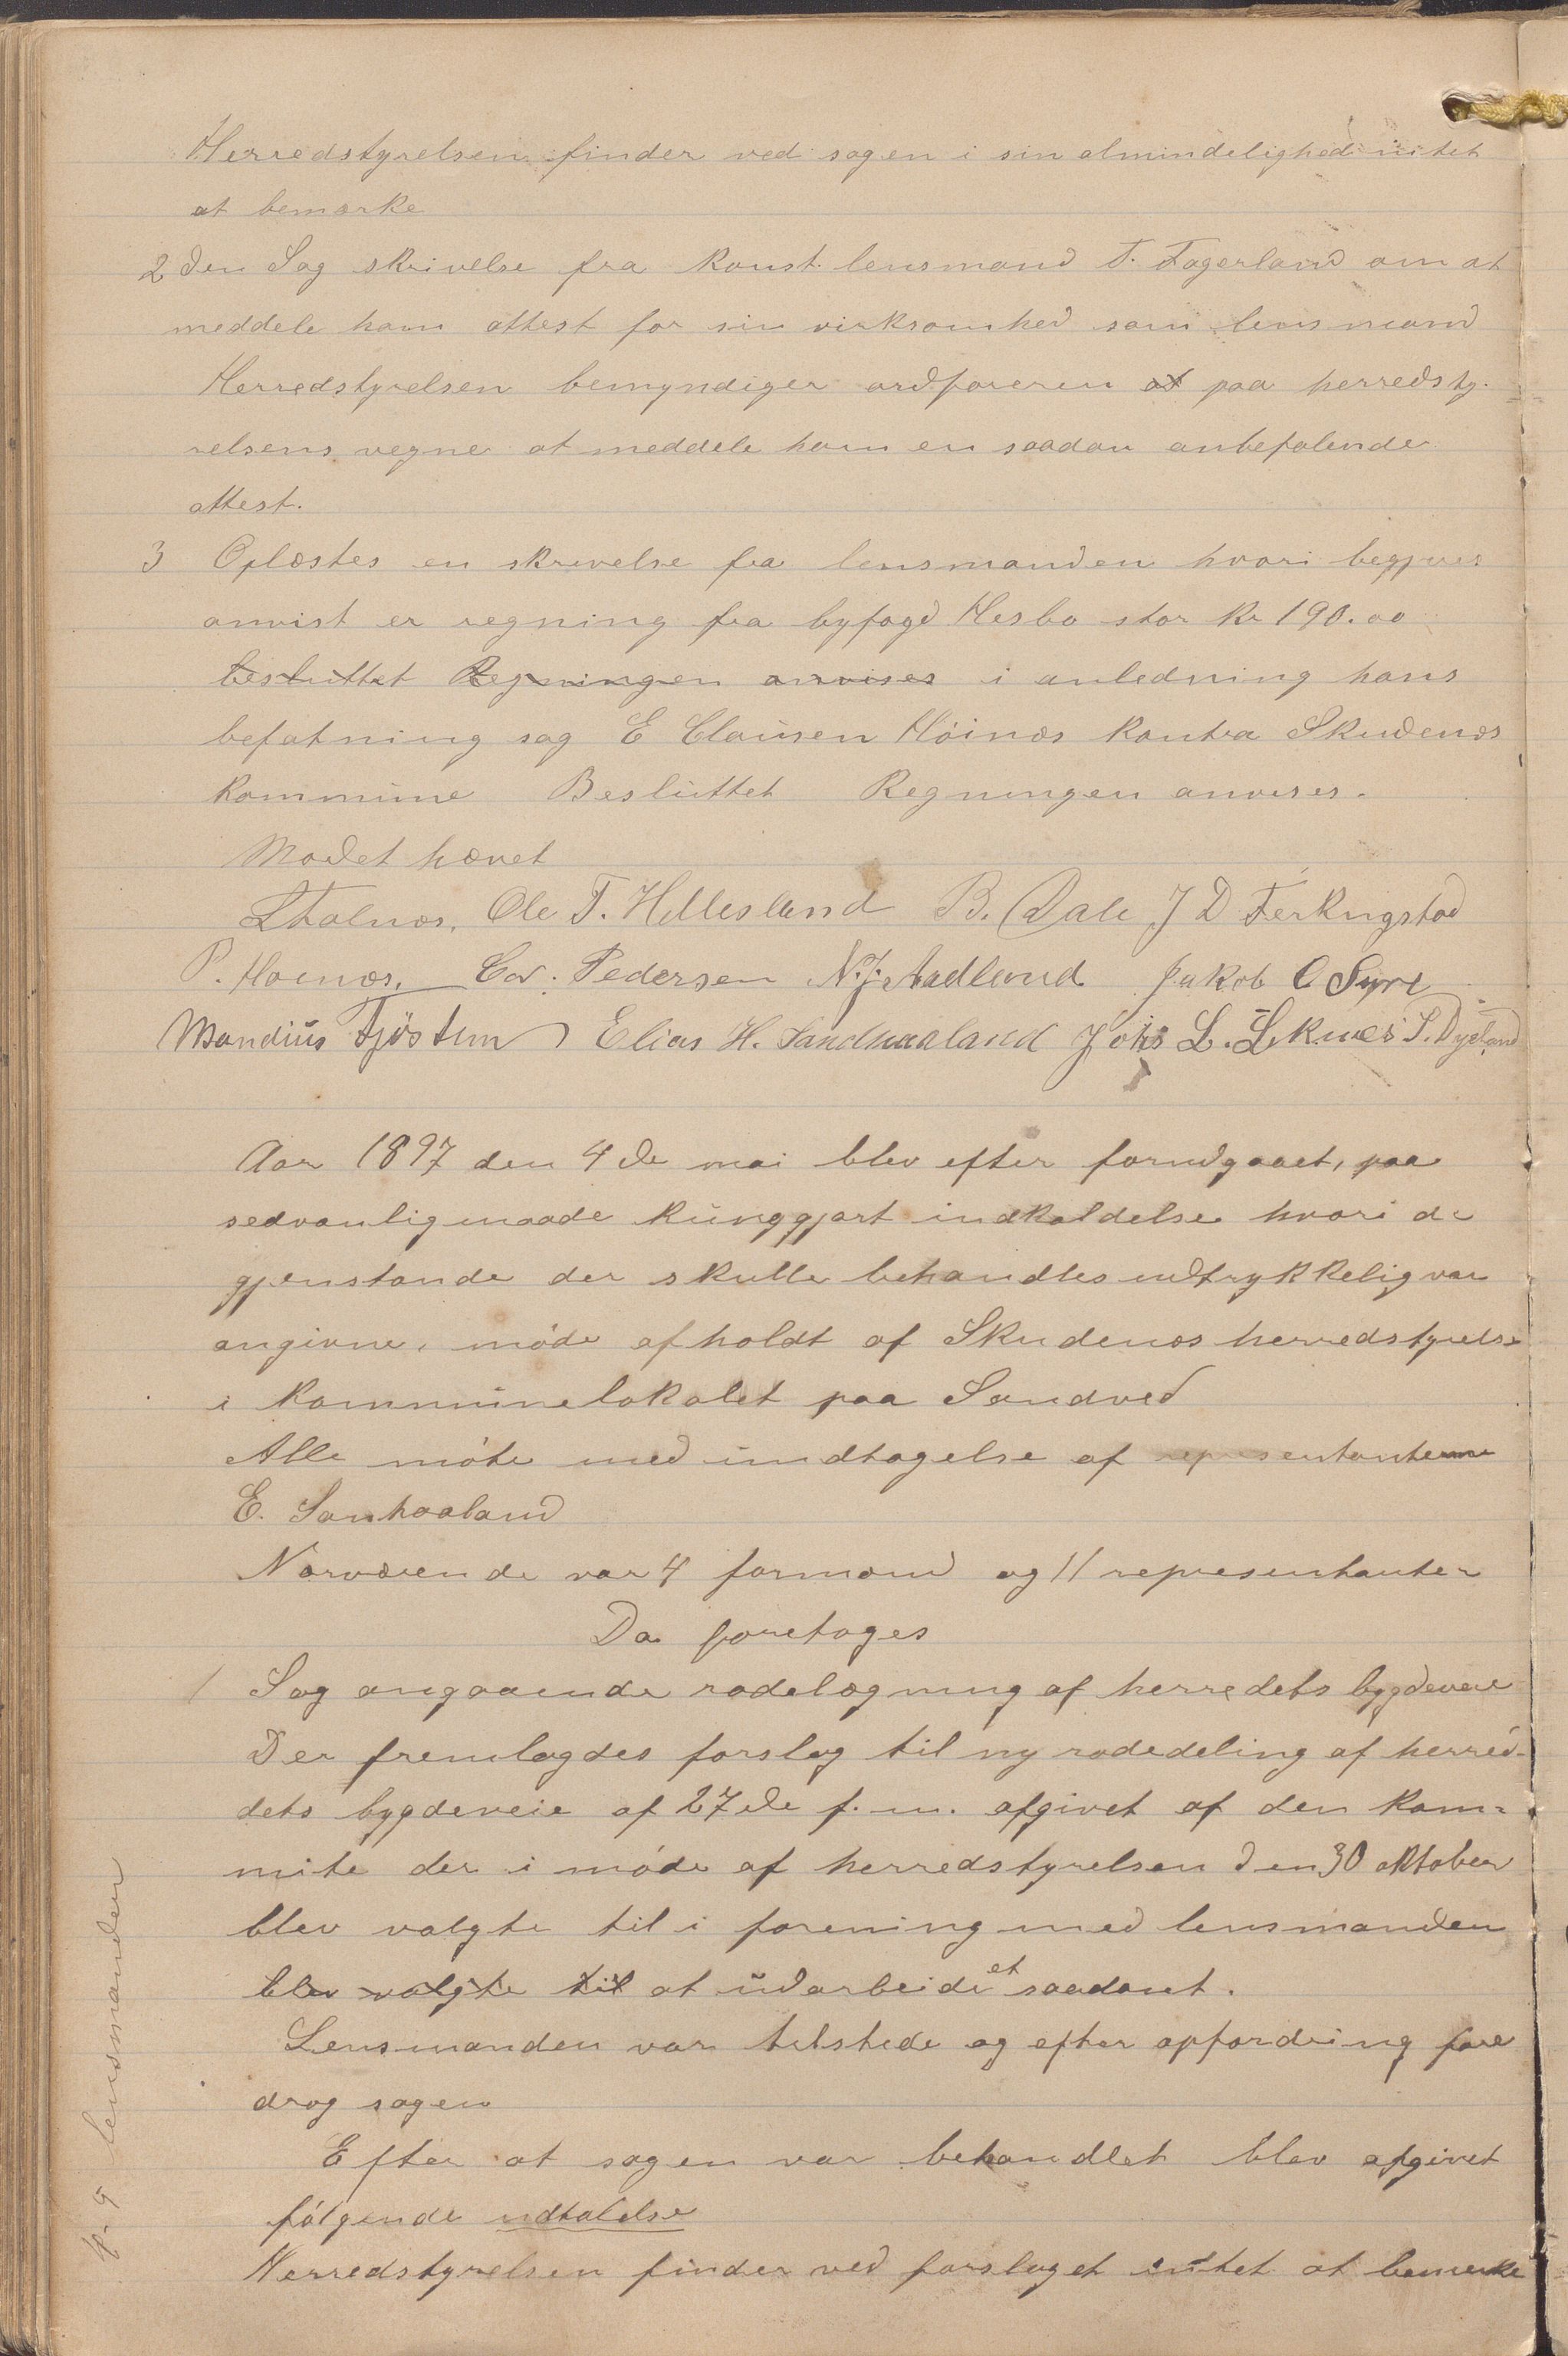 Herredstyrelsen finder ved sagen i sin almindelighed intet
at bemærke
2 den Sag skrivelse fra konst. lensmand T. Fagerland om at
meddele ham attest for sin virksomhed som lensmand
Herredstyrelsen bemyndiger ordføreren at paa herredsty-
relsens vegne at meddele ham en saadan anbefalende
attest.
3 Oplæstes en skrivelse fra lensmanden hvori begjæres
anvist er regning fra byfogd Hesbo stor kr 190.00
besluttet Regningen anvises i anledning hans
befatning sag E Clausen Høinæs kontra Skudenæs
kommune Besluttet Regningen anvises.
Mødet hævet
Ole T. Hillesland B. Dale J D Ferkingstad
P. Høinæs, Edv. Pedersen N. J. Aadland Jakob O Syre
Mandius Tjøstem Elias H. Sandhaaland Johs L. Liknes S. Dyeland
Aar 1897 den 4de mai blev efter forudgaaet, paa
sedvanlig maade kunggjort indkaldelse hvori de
gjenstande der skulle behandles udtrykkelig var
angivne, møde afholdt af Skudenæs herredstyrelse
i kommunelokalet paa Sandved
Alle møte med undtagelse af representanterne
E. Sanhaaland
Nærværende var 4 formænd og 11 representanter
Da foretoges
1 Sag angaaende rodelægning af herredets bygdeveie
Der fremlagdes forslag til ny rodedeling af herred-
dets bygdeveie af 27de f. m. afgivet af den kom-
mite der i møde af herredstyrelsen den 30 oktober
blev valgte til i forening med lensmanden
blev valgte til at udarbeide et saadant.
Lensmanden var tilstede og efter opfordring fore
drog sagen
Efter at sagen var behandlet blev afgivet
følgende udtalelse
Herredstyrelsen finder ved forslaget intet at bemerke
lensmanden